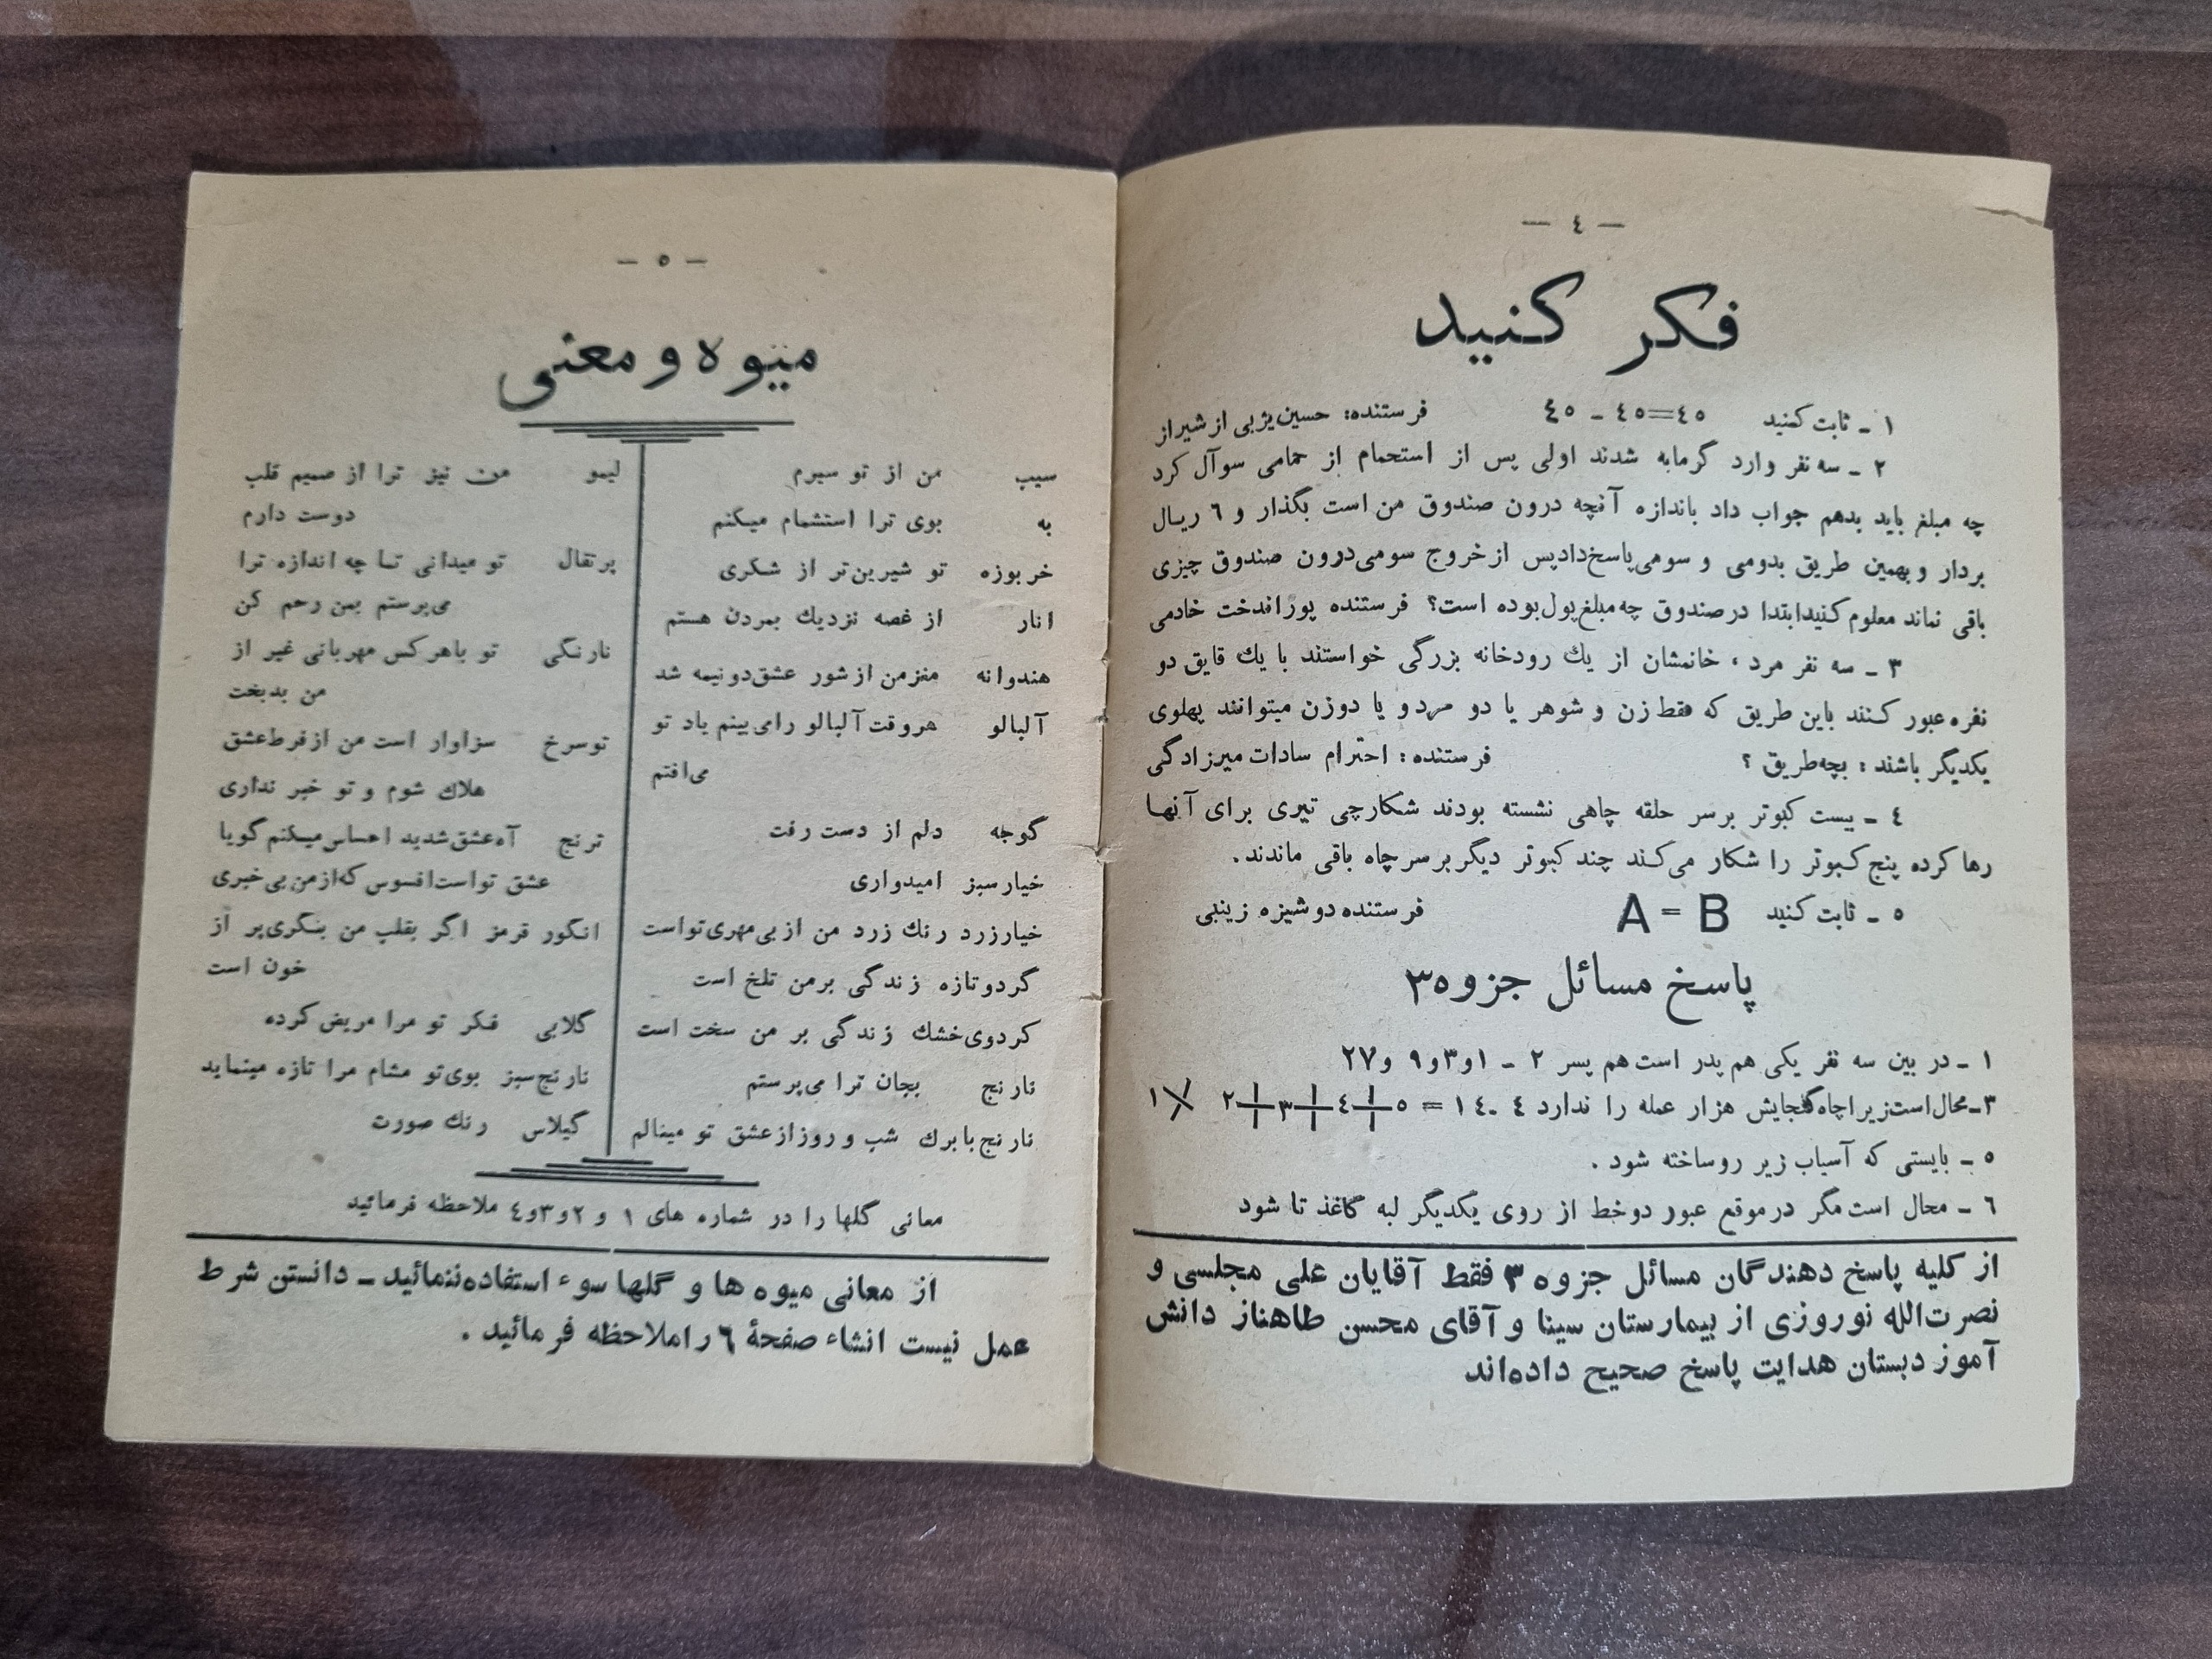 — ٤ —
فکر کنید
١ ـ ثابت کنید ٤٥ ـ ٤٥=٤٥ فرستنده: حسین یژبی از شیراز
٢ ـ سه نفر وارد گرمابه شدند اولی پس از استحمام از حمامی سوآل کرد
چه مبلغ باید بدهم جواب داد باندازه آنچه درون صندوق من است بگذار و ٦ ریال
بردار وبهمین طریق بدومی و سومی پاسخ داد پس از خروج سومی درون صندوق چیزی
باقی نماند معلوم کنید ابتدا در صندوق چه مبلغ پول بوده است؟ فرستنده پوراندخت خادمی
٣ ـ سه نفر مرد ، خانمشان از یك رودخانه بزرگی خواستند با یك قایق دو
نفره عبور کنند باین طریق که فقط زن و شوهر یا دو مرد و یا دوزن میتوانند پهلوی
یکدیگر باشند : بچه طریق ؟ فرستنده : احترام سادات میرزادگی
٤ ـ بیست کبوتر برسر حلقه چاهی نشسته بودند شکارچی تیری برای آنها
رها کرده پنج کبوتر را شکار می‌کند چند کبوتر دیگر بر سر چاه باقی ماندند.
٥ ـ ثابت کنید A = B فرستنده دوشیزه زینبی
پاسخ مسائل جزوه ٣
١ ـ در بین سه نفر یکی هم پدر است هم پسر ٢ ـ ١و٣و٩ و٢٧
٣ـ محال است زیرا چاه گنجایش هزار عمله را ندارد ٤ ـ ١٤ = ٥ ٤ ٣ ٢ ١
٥ ـ بایستی که آسیاب زیر رو ساخته شود .
٦ ـ محال است مگر در موقع عبور دوخط از روی یکدیگر لبه کاغذ تا شود
از کلیه پاسخ دهندگان مسائل جزوه ٣ فقط آقایان علی مجلسی و
نصرت‌الله نوروزی از بیمارستان سینا و آقای محسن طاهناز دانش
آموز دبستان هدایت پاسخ صحیح داده‌اند
— ٥ —
میوه و معنی
سیب من از تو سیرم
به بوی ترا استشمام میکنم
خربوزه تو شیرین‌تر از شکری
انار از غصه نزدیك بمردن هستم
هندوانه مغزمن از شور عشق دونیمه شد
آلبالو هروقت آلبالو را می‌بینم یاد تو
می‌افتم
گوجه دلم از دست رفت
خیارسبز امیدواری
خیارزرد رنك زرد من از بی‌مهری تو است
گردوتازه زندگی برمن تلخ است
کردوی خشك زندگی بر من سخت است
نارنج بجان ترا می‌پرستم
نارنج با برك شب و روز از عشق تو مینالم
لیمو من نیز ترا از صمیم قلب
دوست دارم
پرتقال تو میدانی تا چه اندازه ترا
می‌پرستم بمن رحم کن
نارنگی تو باهرکس مهربانی غیر از
من بدبخت
توسرخ سزاوار است من از فرط عشق
هلاك شوم و تو خبر نداری
ترنج آه عشق شدید احساس میکنم گویا
عشق تو است افسوس که از من بی خبری
انگور قرمز اگر بقلب من بنگری پر از
خون است
گلابی فکر تو مرا مریض کرده
نارنج سبز بوی تو مشام مرا تازه مینماید
گیلاس رنك صورت
معانی گلها را در شماره های ١ و ٢و٣و٤ ملاحظه فرمائید
از معانی میوه ها و گلها سوء استفاده ننمائید ـ دانستن شرط
عمل نیست انشاء صفحهٔ ٦ را ملاحظه فرمائید .